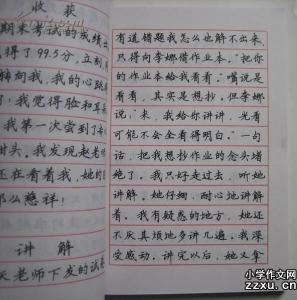 收 获
期末考试的成绩出
得了99.5分,
转向我,我的心跳
!我觉得脸和耳
我第一次尝到了
甜头。我发现赵老师
还在看着我,她的
那么慈祥!
讲 解
天老师下发的试卷
有道错题我怎么也解不出来,
只得向李娜借作业本。“把你
的作业本给我看看。”嘴说是
看看,其实是想抄。但李娜
说:“来,我给你讲讲,光看
可能不会全看得明白。”一句
话,把我想抄作业的念头堵
绝了。我只好走过去,听她
讲解。她仔细、耐心地讲解
着。我有疑惑的地方,她还
不厌其烦地多讲几遍,我深
受感动。讲完以后,她又拿
小学作文网
zzxu.cn